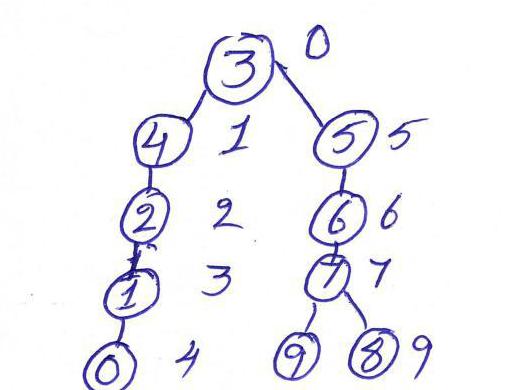 3 0
4 1 5 5
2 2 6 6
1 3 7 7
0 4 9 8 9